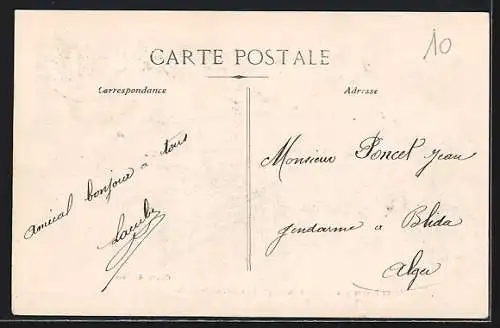 10
CARTE POSTALE
Correspondance
Adresse
amical bonjour à tous
Monsieur Poncet Jean
gendarme à Blida
Alger